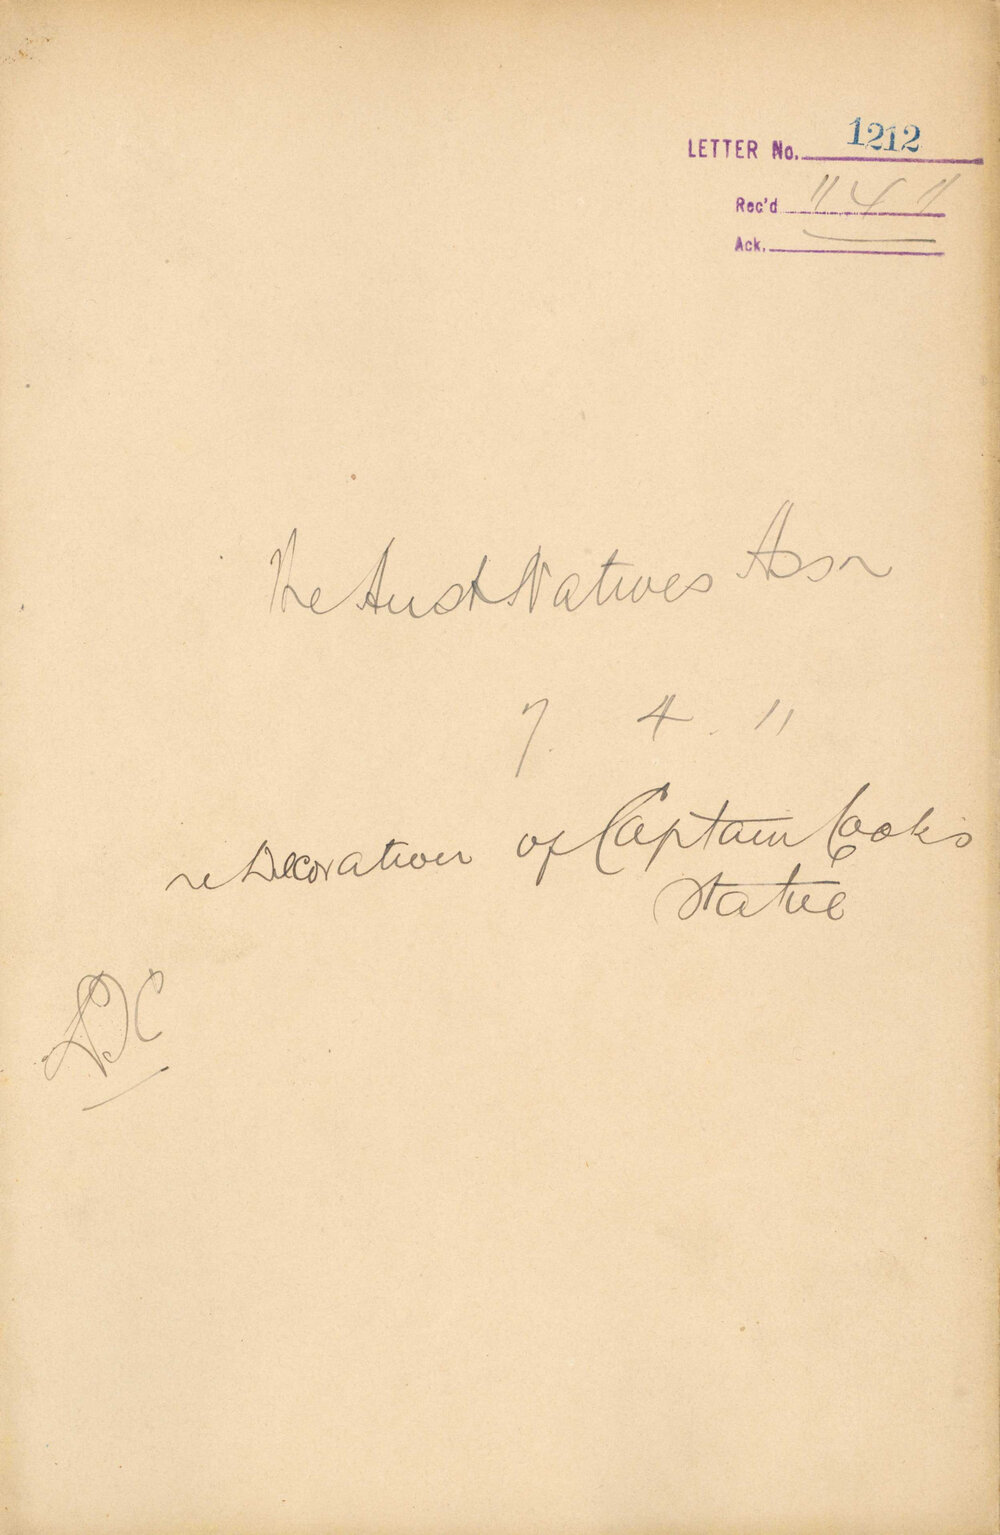 LETTER No. 1212
Rec'd 11 4 11
Ack.
The Aust Natives Assn
7. 4. 11
re Decoration of Captain Cook's
Statue